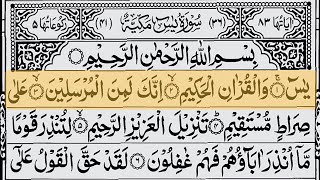 اٰیاتها ۸۳ (۳۶) سُوْرَةُ يٰسٓ مَكِّيَّةٌ (۴۱) رکوعاتها ۵
بِسْمِ اللّٰهِ الرَّحْمٰنِ الرَّحِيْمِ
يٰسٓ ۝۱ وَالْقُرْاٰنِ الْحَكِيْمِ ۝۲ اِنَّكَ لَمِنَ الْمُرْسَلِيْنَ ۝۳ عَلٰى
صِرَاطٍ مُّسْتَقِيْمٍ ۝۴ تَنْزِيْلَ الْعَزِيْزِ الرَّحِيْمِ ۝۵ لِتُنْذِرَ قَوْمًا
مَّاۤ اُنْذِرَ اٰبَآؤُهُمْ فَهُمْ غٰفِلُوْنَ ۝۶ لَقَدْ حَقَّ الْقَوْلُ عَلٰۤى